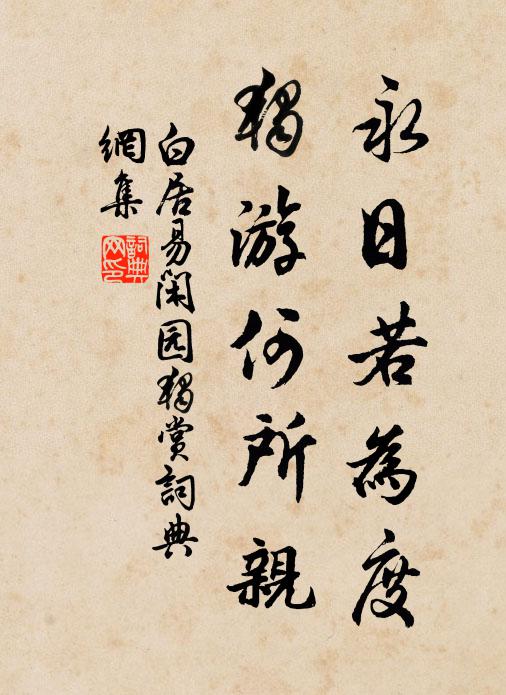 永日若為度
獨游何所親
白居易閑园獨賞詞典
網集
詞典
网印